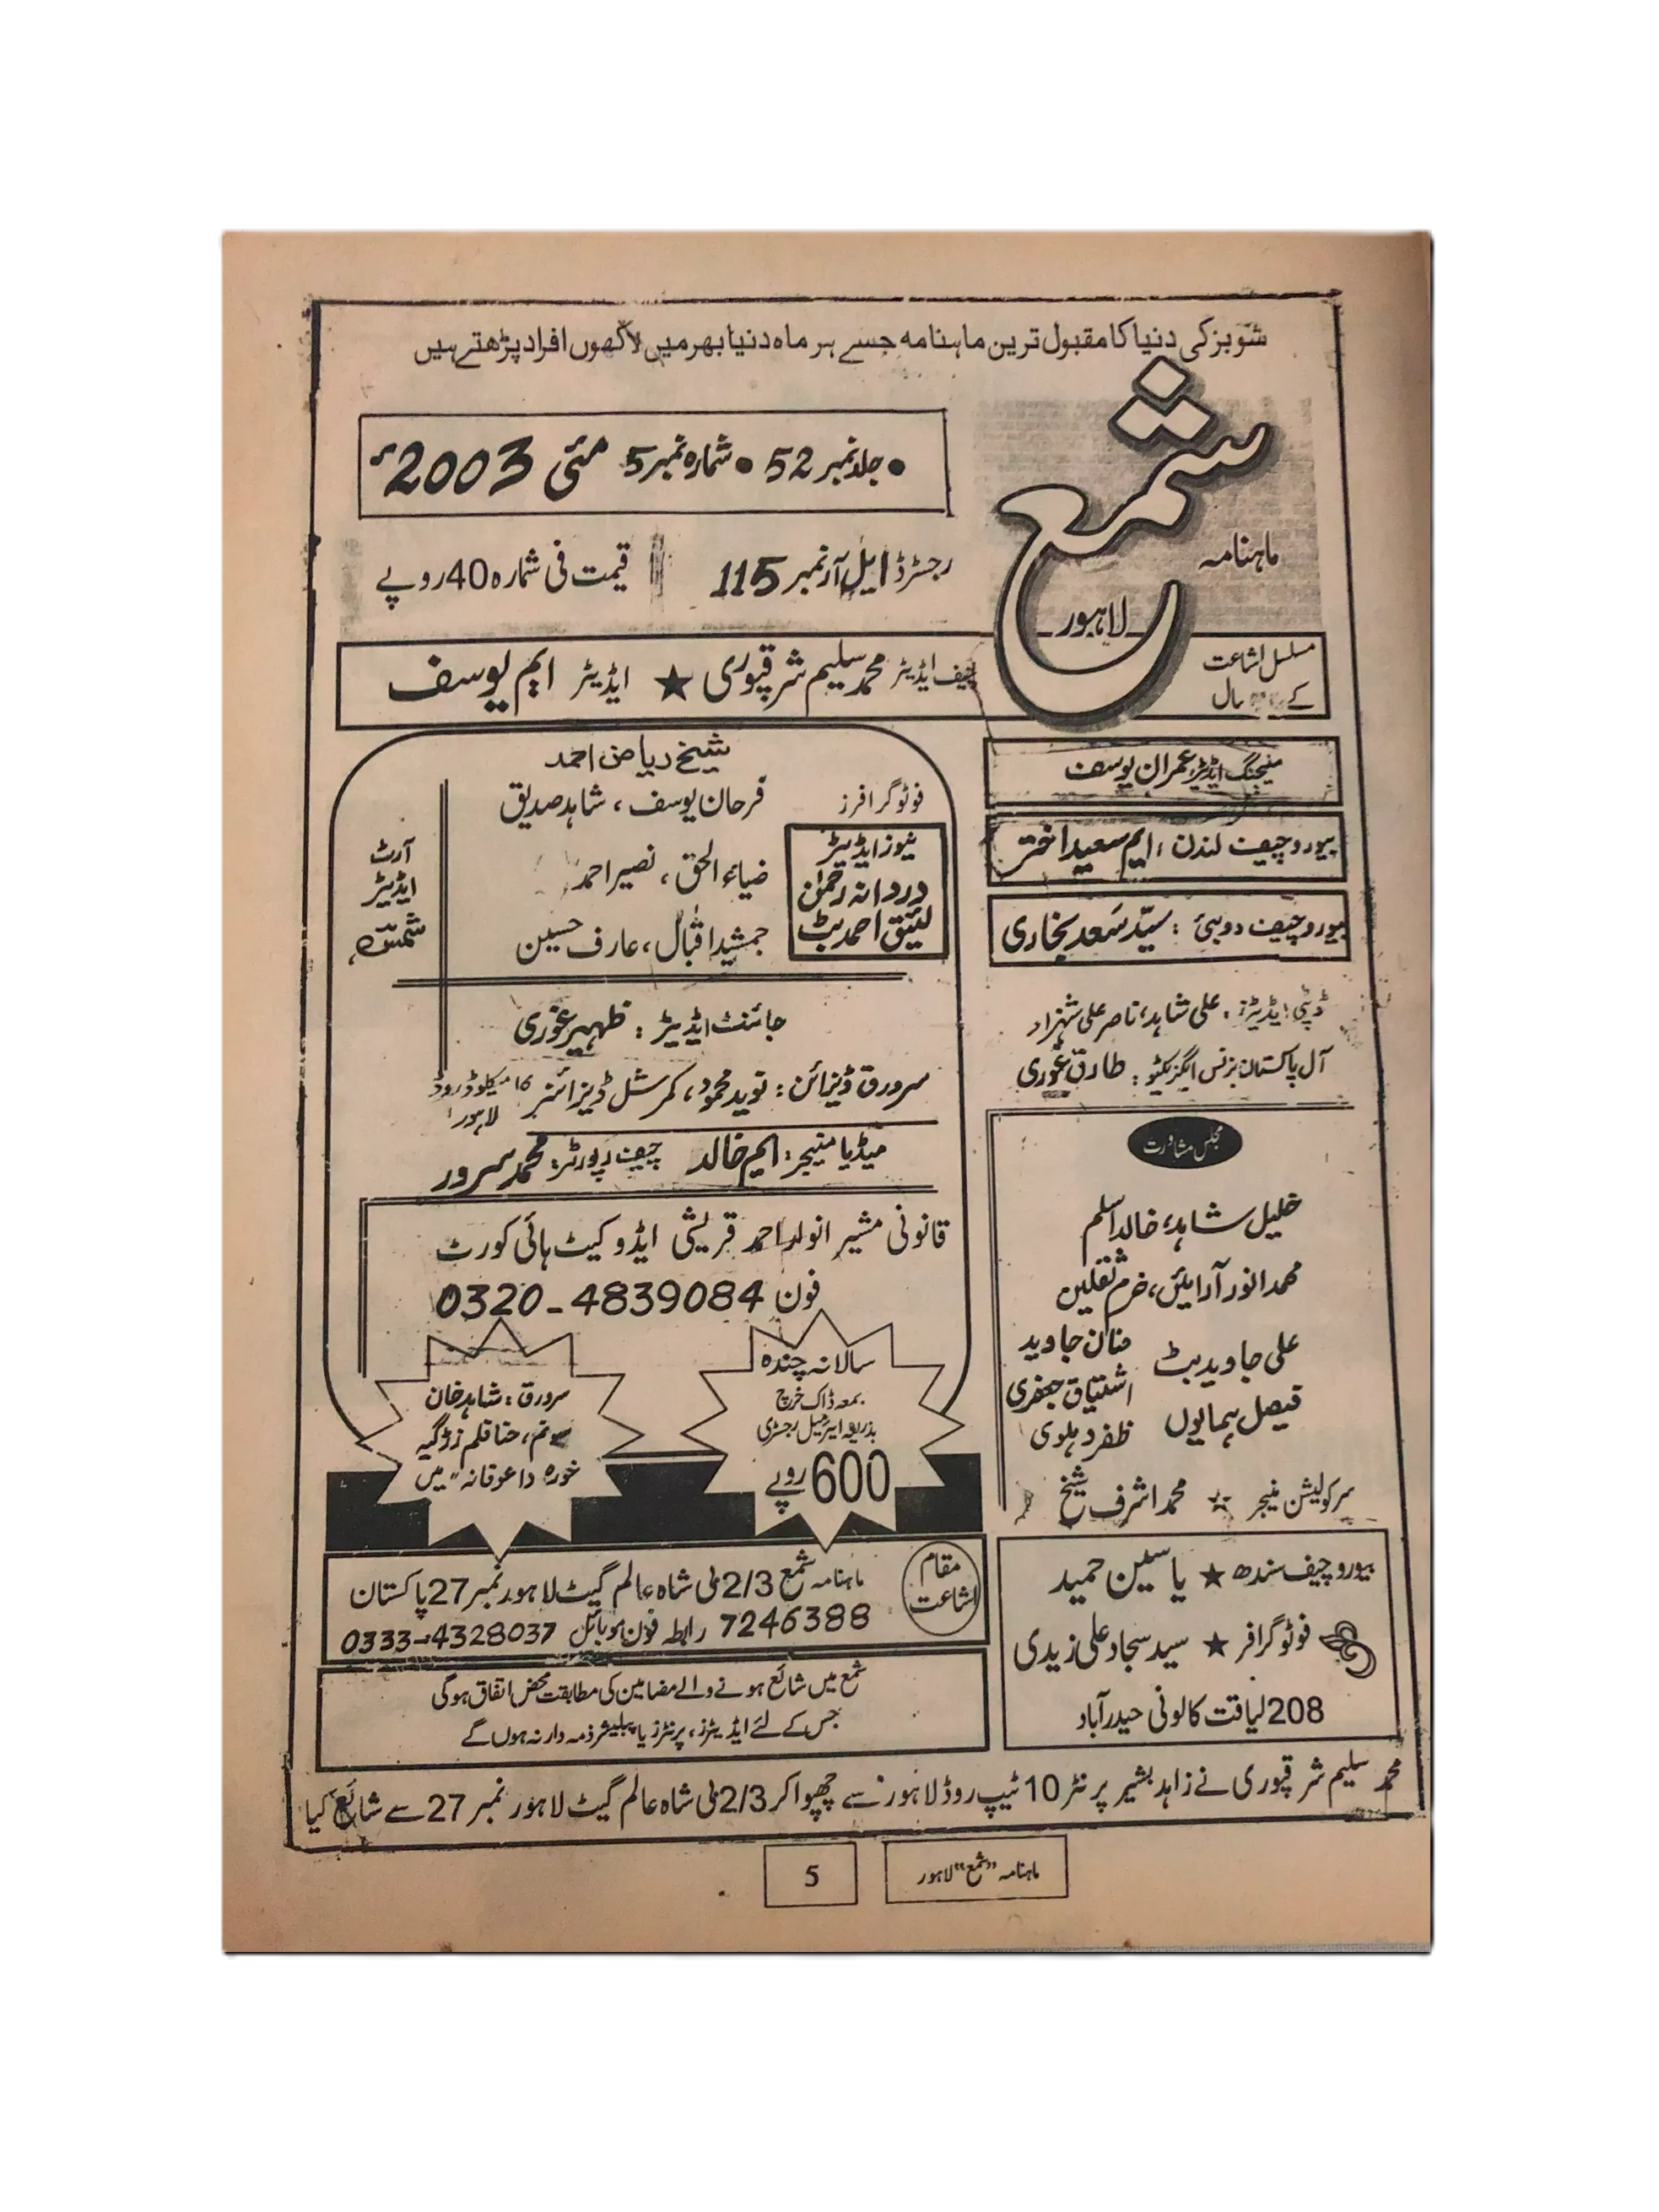 شوبز کی دنیا کا مقبول ترین ماہنامہ جسے ہر ماہ دنیا بھر میں لاکھوں افراد پڑھتے ہیں
ماہنامہ
شمع
لاہور
• جلد نمبر 52 • شمارہ نمبر 5 مئی 2003ء
رجسٹرڈ ایل آر نمبر 115
قیمت فی شمارہ 40 روپے
مسلسل اشاعت
کے سال
چیف ایڈیٹر محمد سلیم شرقپوری ★ ایڈیٹر ایم یوسف
منیجنگ ایڈیٹر: عمران یوسف
بیورو چیف لندن: ایم سعید اختر
بیورو چیف دوبئی: سیّد سَعد بخاری
ڈپٹی ایڈیٹرز: علی شاہد، ناصر علی شہزاد
آل پاکستان بزنس ایگزیکٹو: طارق غوری
مجلس مشاورت
خلیل شاہد، خالد اسلم
محمد انور آرائیں، خرم ثقلین
علی جاوید بٹ منان جاوید
اشتیاق جعفری
فیصل ہمایوں ظفر دہلوی
سرکولیشن منیجر ☆ محمد اشرف شیخ
بیورو چیف سندھ ★ یاسین حمید
فوٹوگرافر ★ سید سجاد علی زیدی
208 لیاقت کالونی حیدرآباد
شیخ ریاض احمد
فوٹوگرافرز
فرحان یوسف، شاہد صدیق
ضیاء الحق، نصیر احمد
جمشید اقبال، عارف حسین
نیوز ایڈیٹر
دردانہ رحمٰن
لئیق احمد بٹ
آرٹ
ایڈیٹر
شمسی
جائنٹ ایڈیٹر: ظہیر غوری
سرورق ڈیزائن: نوید محمود، کمرشل ڈیزائنر 16 میکلوڈ روڈ
لاہور
میڈیا منیجر: ایم خالد چیف رپورٹر: محمد سرور
قانونی مشیر انوار احمد قریشی ایڈوکیٹ ہائی کورٹ
فون 0320-4839084
سالانہ چندہ
بمعہ ڈاک خرچ
بذریعہ ایئر میل رجسٹری
600 روپے
سرورق: شاہد خان
صنم، حنا قلم زڑگیہ
خورہ داعوقانہ" میں
مقام
اشاعت
ماہنامہ شمع 2/3 بی شاہ عالم گیٹ لاہور نمبر 27 پاکستان
7246388 رابطہ فون موبائل 0333-4328037
شمع میں شائع ہونے والے مضامین کی مطابقت محض اتفاق ہوگی
جس کے لئے ایڈیٹرز، پرنٹرز یا پبلیشر ذمہ دار نہ ہوں گے
محمد سلیم شرقپوری نے زاہد بشیر پرنٹر 10 ٹیپ روڈ لاہور سے چھپوا کر 2/3 بی شاہ عالم گیٹ لاہور نمبر 27 سے شائع کیا
ماہنامہ "شمع" لاہور
5